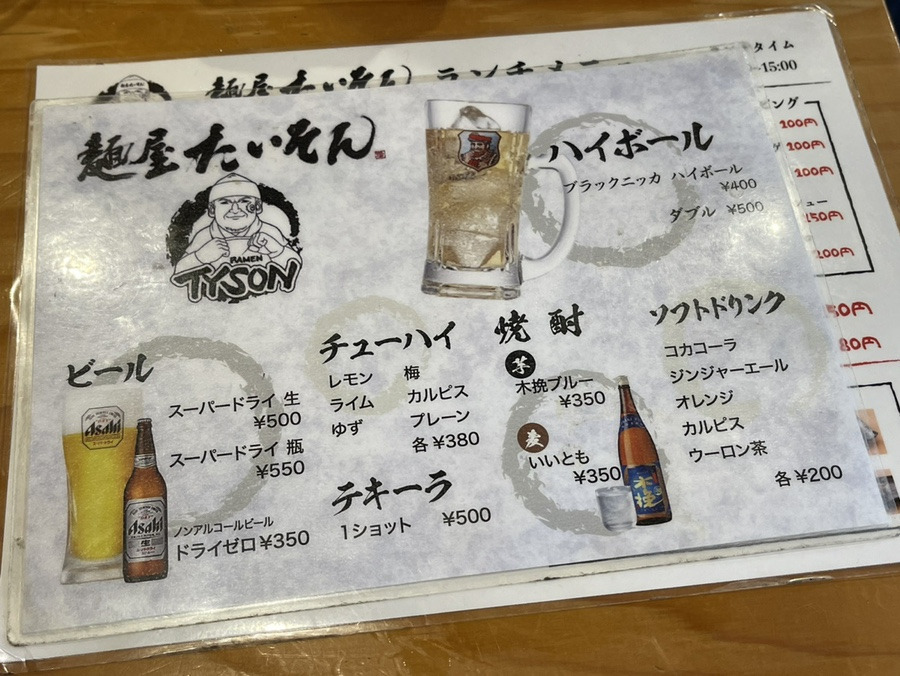 麺屋 たいそん ランチメニュー
タイム
15:00
ピング
100円
100円
100円
ュー
150円
200円
50円
80円
麺屋 たいそん
RAMEN
TYSON
ハイボール
ブラックニッカ ハイボール
¥400
ダブル ¥500
ビール
Asahi
スーパードライ 生
¥500
スーパードライ 瓶
¥550
Asahi
生
ノンアルコールビール
ドライゼロ ¥350
チューハイ
レモン 梅
ライム カルピス
ゆず プレーン
各¥380
テキーラ
1ショット ¥500
焼酎
芋
木挽ブルー
¥350
麦
いいとも
¥350
木挽
ソフトドリンク
コカコーラ
ジンジャーエール
オレンジ
カルピス
ウーロン茶
各¥200